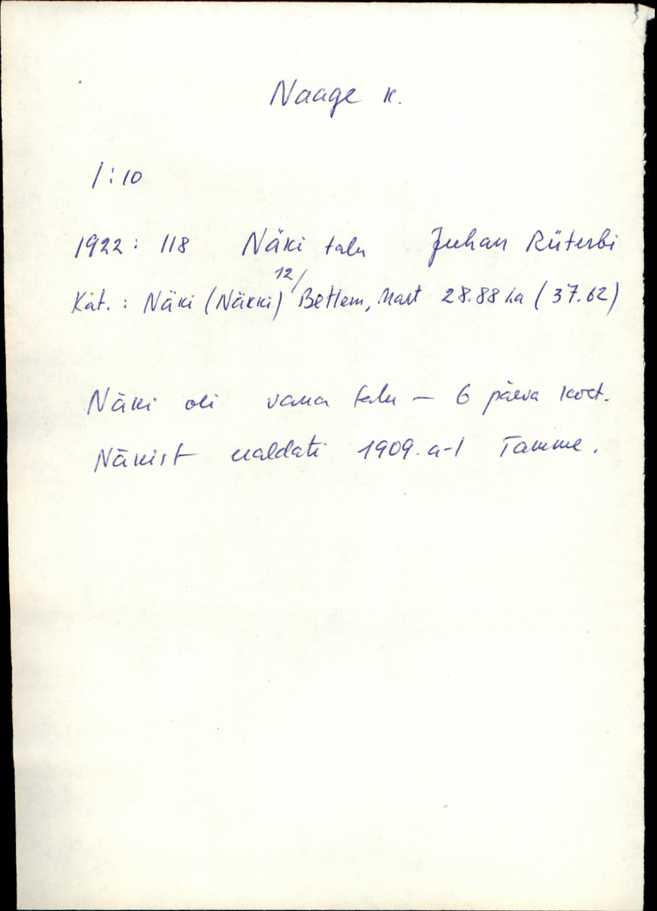 Naage k.
1:10
1922: 118 Näki talu Juhan Rüterbi
Kat.: Näki (Näkki) 12/ Betlem, Mart 28.88 ha (37.62)
Näki oli vana talu — 6 päeva koct.
Näkist eraldati 1909. a-l Tamme.